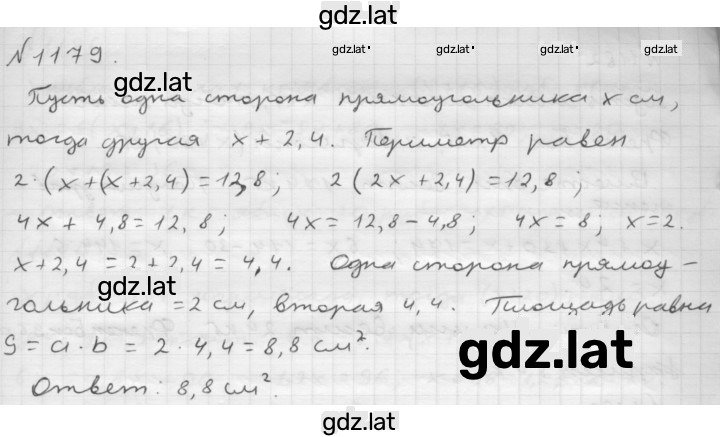 gdz.lat
N 1179.
gdz.lat gdz.lat gdz.lat gdz.lat
gdz.lat
Пусть одна сторона прямоугольника x см,
тогда другая x + 2,4. Периметр равен
2·(x+(x+2,4)=12,8; 2(2x+2,4)=12,8;
4x + 4,8=12,8; 4x = 12,8-4,8; 4x = 8; x=2.
x+2,4 = 2+2,4 = 4,4. Одна сторона прямоу-
gdz.lat
гольника =2 см, вторая 4,4. Площадь равна
S = a·b = 2·4,4=8,8 см².
gdz.lat
Ответ: 8,8 см².
gdz.lat